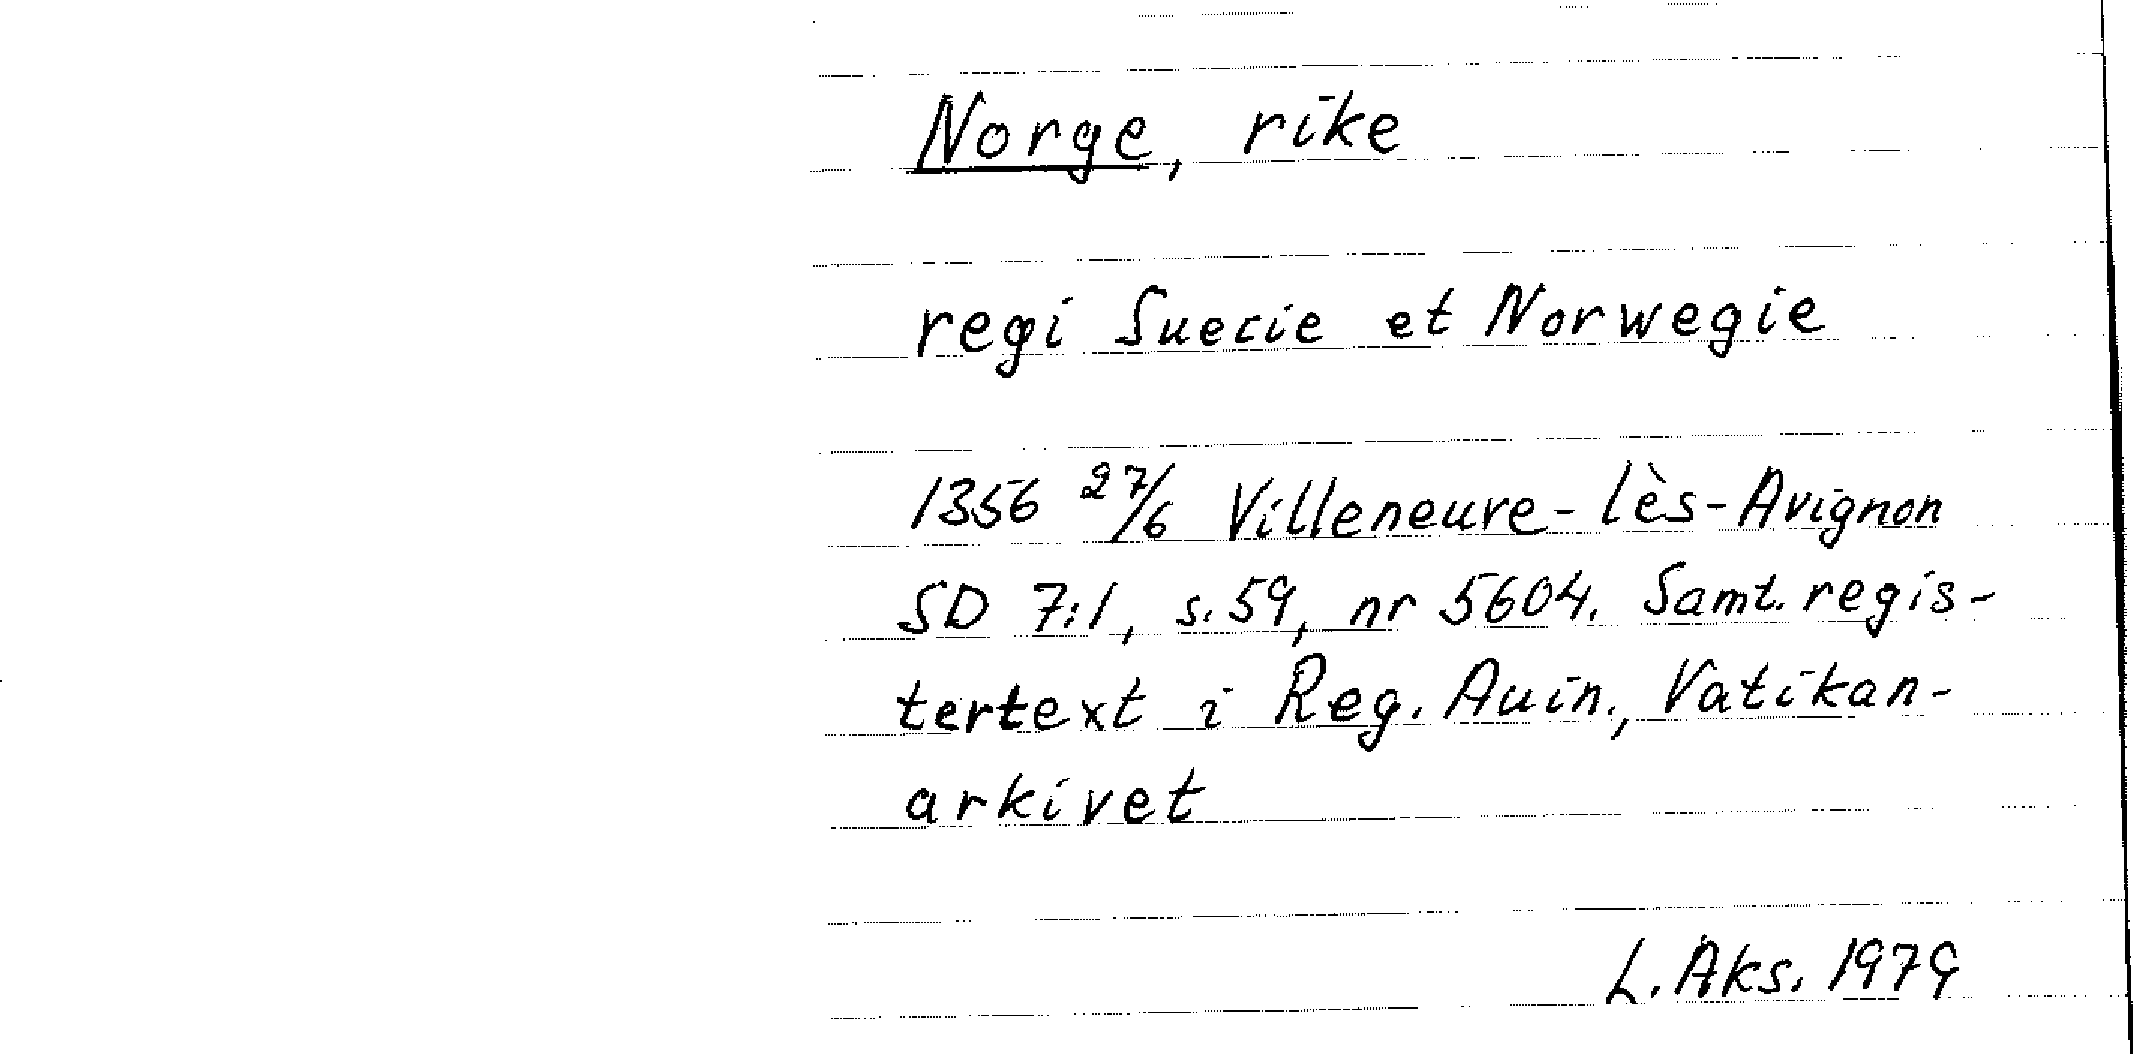 Norge, rike
regi Suecie et Norwegie
1356 27/6 Villeneuve-lès-Avignon
SD 7:1, s. 59, nr 5604. Samt. regis-
tertext i Reg. Auin., Vatikan-
arkivet
L. Aks. 1979